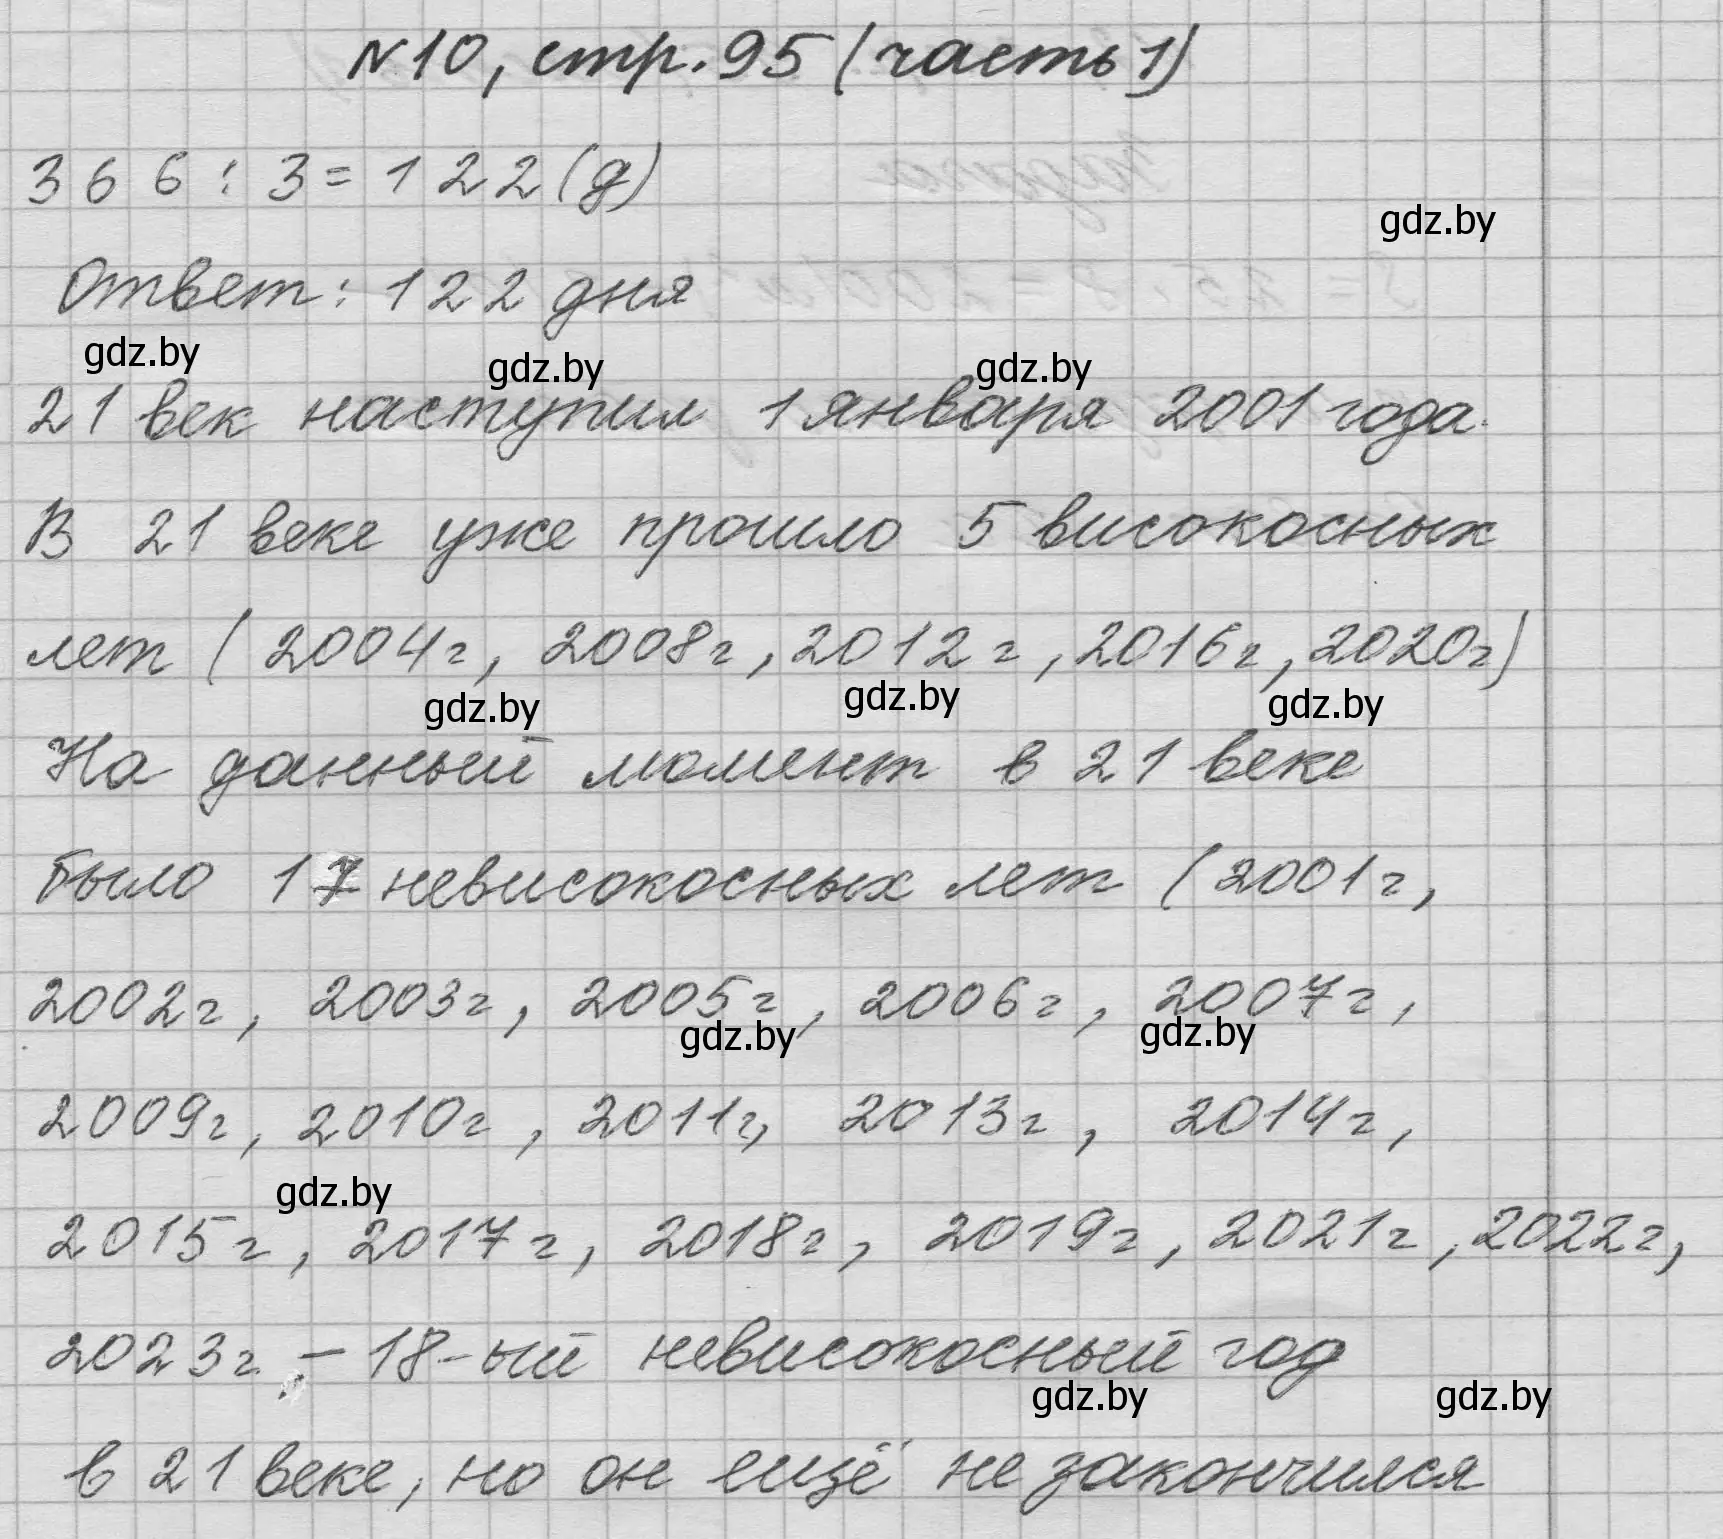 №10, стр. 95 (часть 1)
366 : 3 = 122 (д)
gdz.by
Ответ: 122 дня
gdz.by gdz.by gdz.by
21 век наступил 1 января 2001 года.
В 21 веке уже прошло 5 високосных
лет (2004г, 2008г, 2012г, 2016г, 2020г)
gdz.by gdz.by gdz.by
На данный момент в 21 веке
было 17 невисокосных лет (2001г,
2002г, 2003г, 2005г, 2006г, 2007г,
gdz.by gdz.by
2009г, 2010г, 2011г, 2013г, 2014г,
gdz.by
2015г, 2017г, 2018г, 2019г, 2021г, 2022г,
2023г – 18-ый невисокосный год
gdz.by gdz.by
в 21 веке, но он ещё не закончился